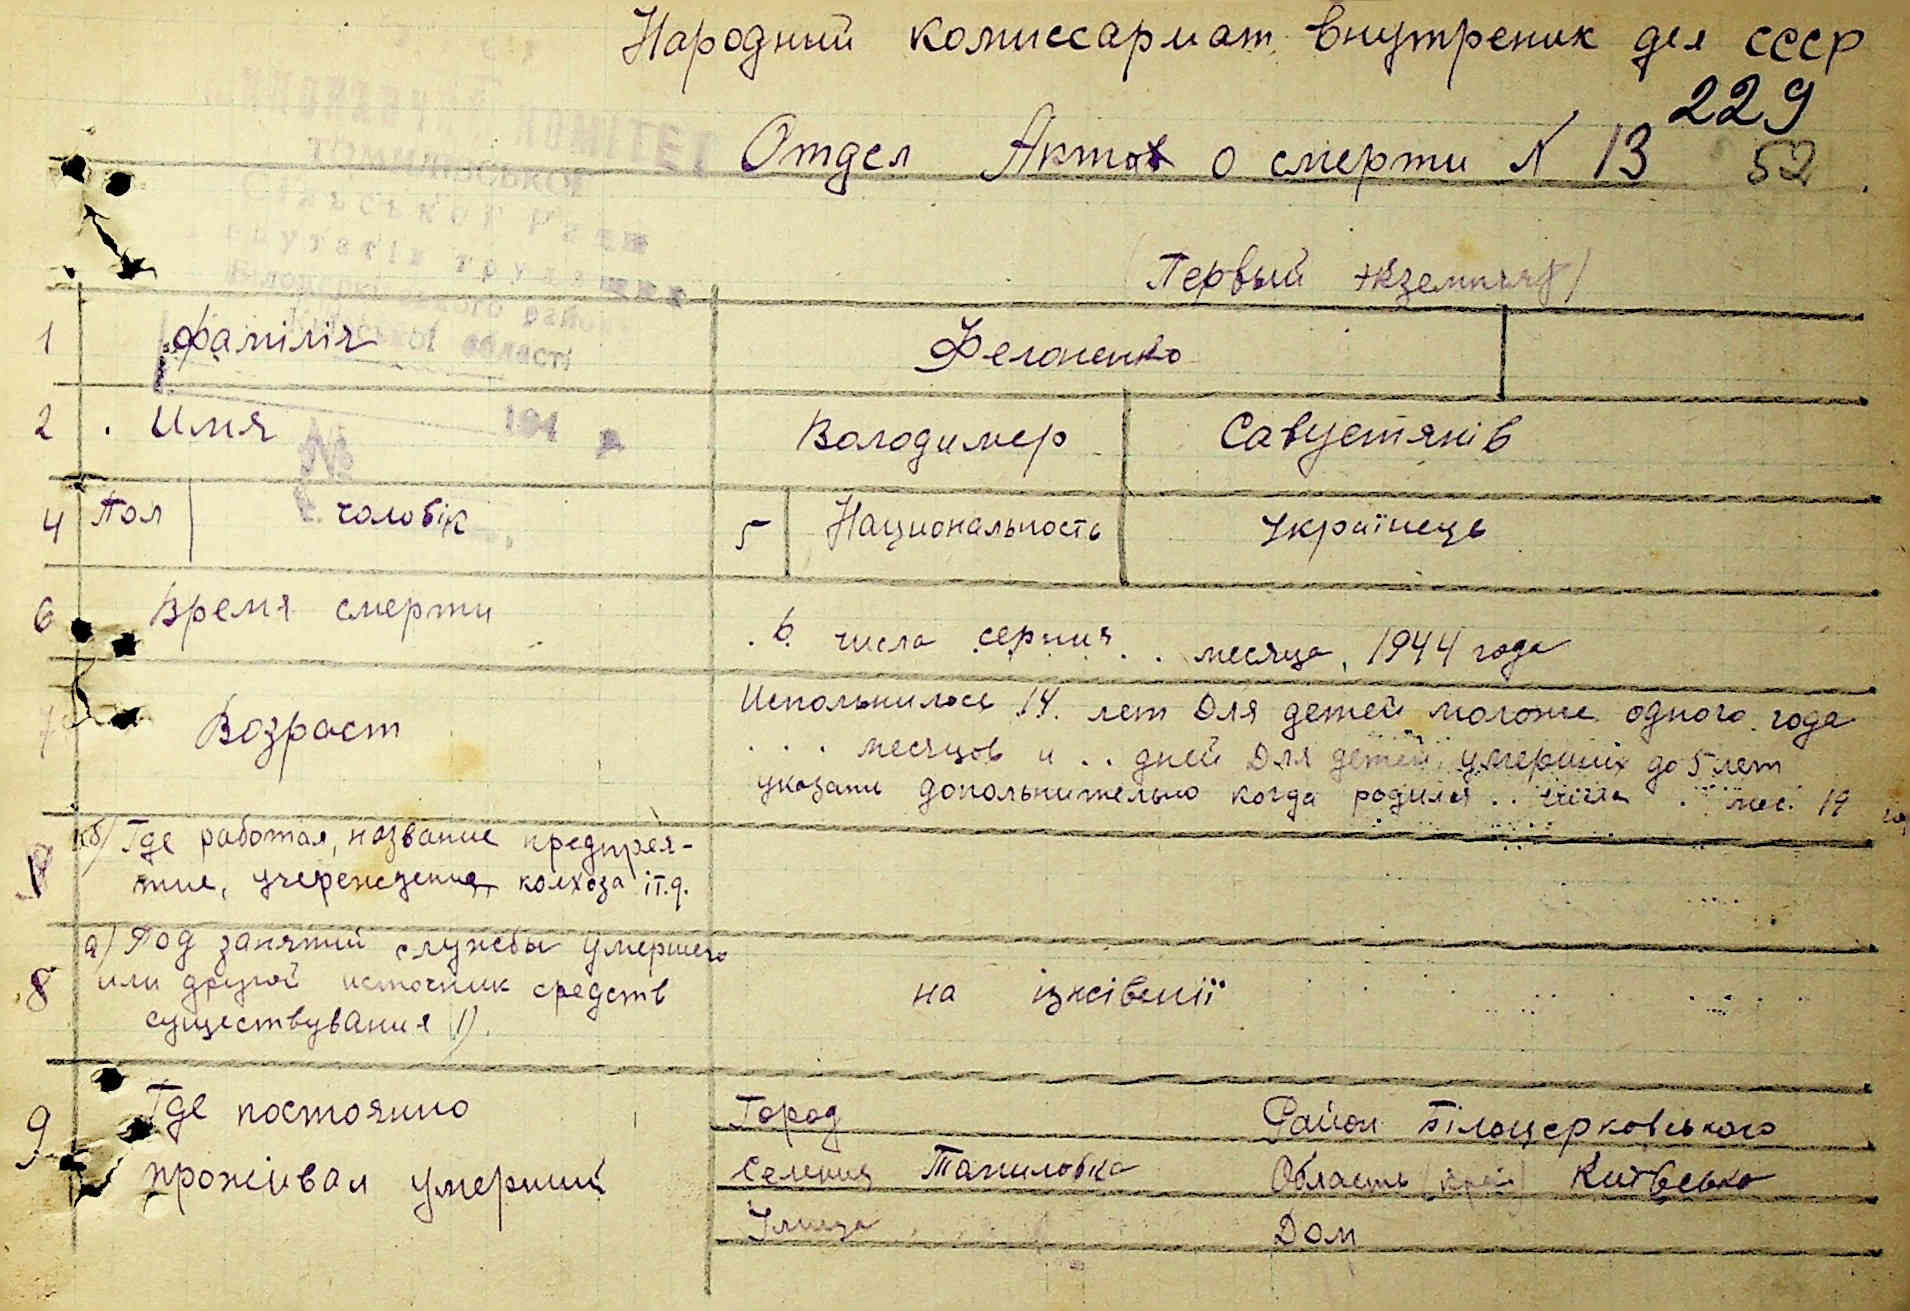 Народний комиссариат внутреник дел СССР
229
Отдел Актов о смерти N 13 52
КОМІТЕТ
Сільської Ради
області
194 р
№
(Первый экземпляр)
1 Фамілія Фелоненко
2 . Имя Володимер Савустянів
4 Пол чоловік 5 Национальность Українець
6 Время смерти . 6 числа серпня . . месяца, 1944 года
7 Возраст Испольнилось 14. лет Для детей моложе одного года
. . . месяцов и . . дней Для детей умерших до 5 лет
указати допольнительно когда родился . . числа . мес. 19 го
кб) Где работал, название предпрея-
тие, учереждения колхоза іт.д.
а) Род занятий службы умершего
8 или другой источник средств на іжівенії
существування 1).
9 Где постоянно Город Район Білоцерковського
проживал умерший Селения Томиловка Область (край) Київсько
Улица Дом